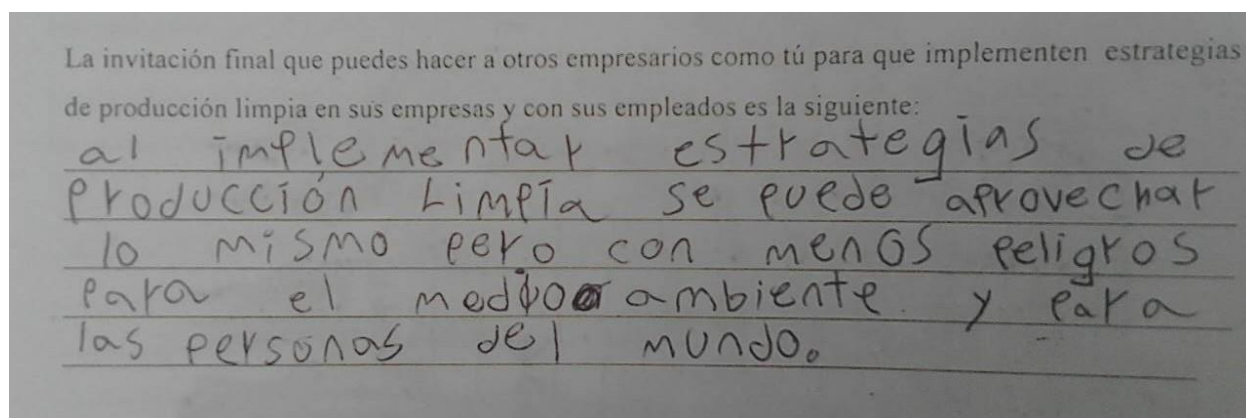 La invitación final que puedes hacer a otros empresarios como tú para que implementen estrategias
de producción limpia en sus empresas y con sus empleados es la siguiente:
al implementar estrategias de
Producción Limpia se puede aprovechar
lo mismo pero con menos peligros
para el medio ambiente y para
las personas del mundo.